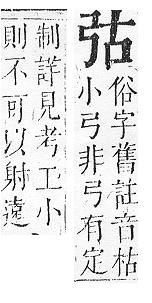 弦俗字舊註音枯
小弓非弓有定
制詳見考工小
則不可以射遠